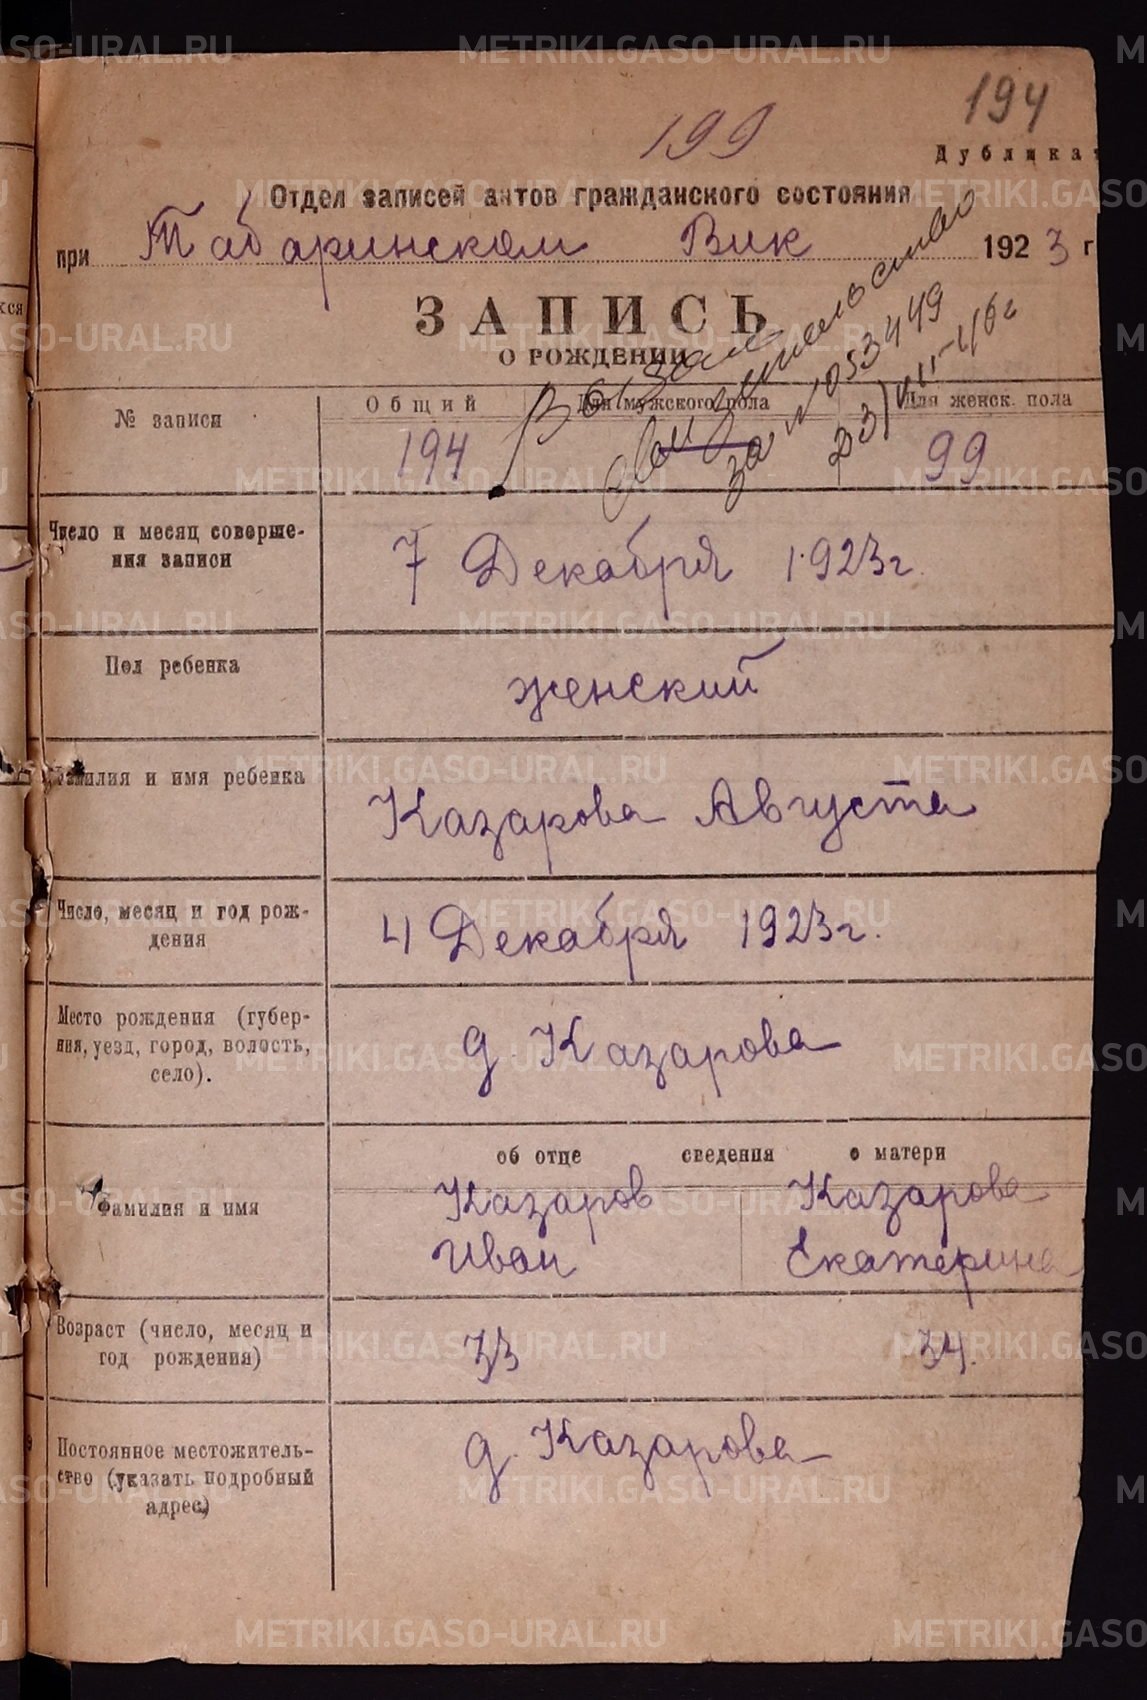 194
199
Дубликат
Отдел записей актов гражданского состояния
при Табаринском Вик 1923 г
ЗАПИСЬ
О РОЖДЕНИИ
Выдано
свидетельство
за № 053449
23/VII-46г
№ записи
Общий Для мужского пола Для женск. пола
194 99
Число и месяц соверше-
ния записи
7 Декабря 1923г.
Пол ребенка
женский
Фамилия и имя ребенка
Казарова Августа
Число, месяц и год рож-
дения
4 Декабря 1923г.
Место рождения (губер-
ния, уезд, город, волость,
село).
д. Казарова
об отце сведения о матери
Фамилия и имя
Казаров Казарова
Иван Екатерина
Возраст (число, месяц и
год рождения)
33 34.
Постоянное местожитель-
ство (указать подробный
адрес)
д. Казарова
METRIKI.GASO-URAL.RU